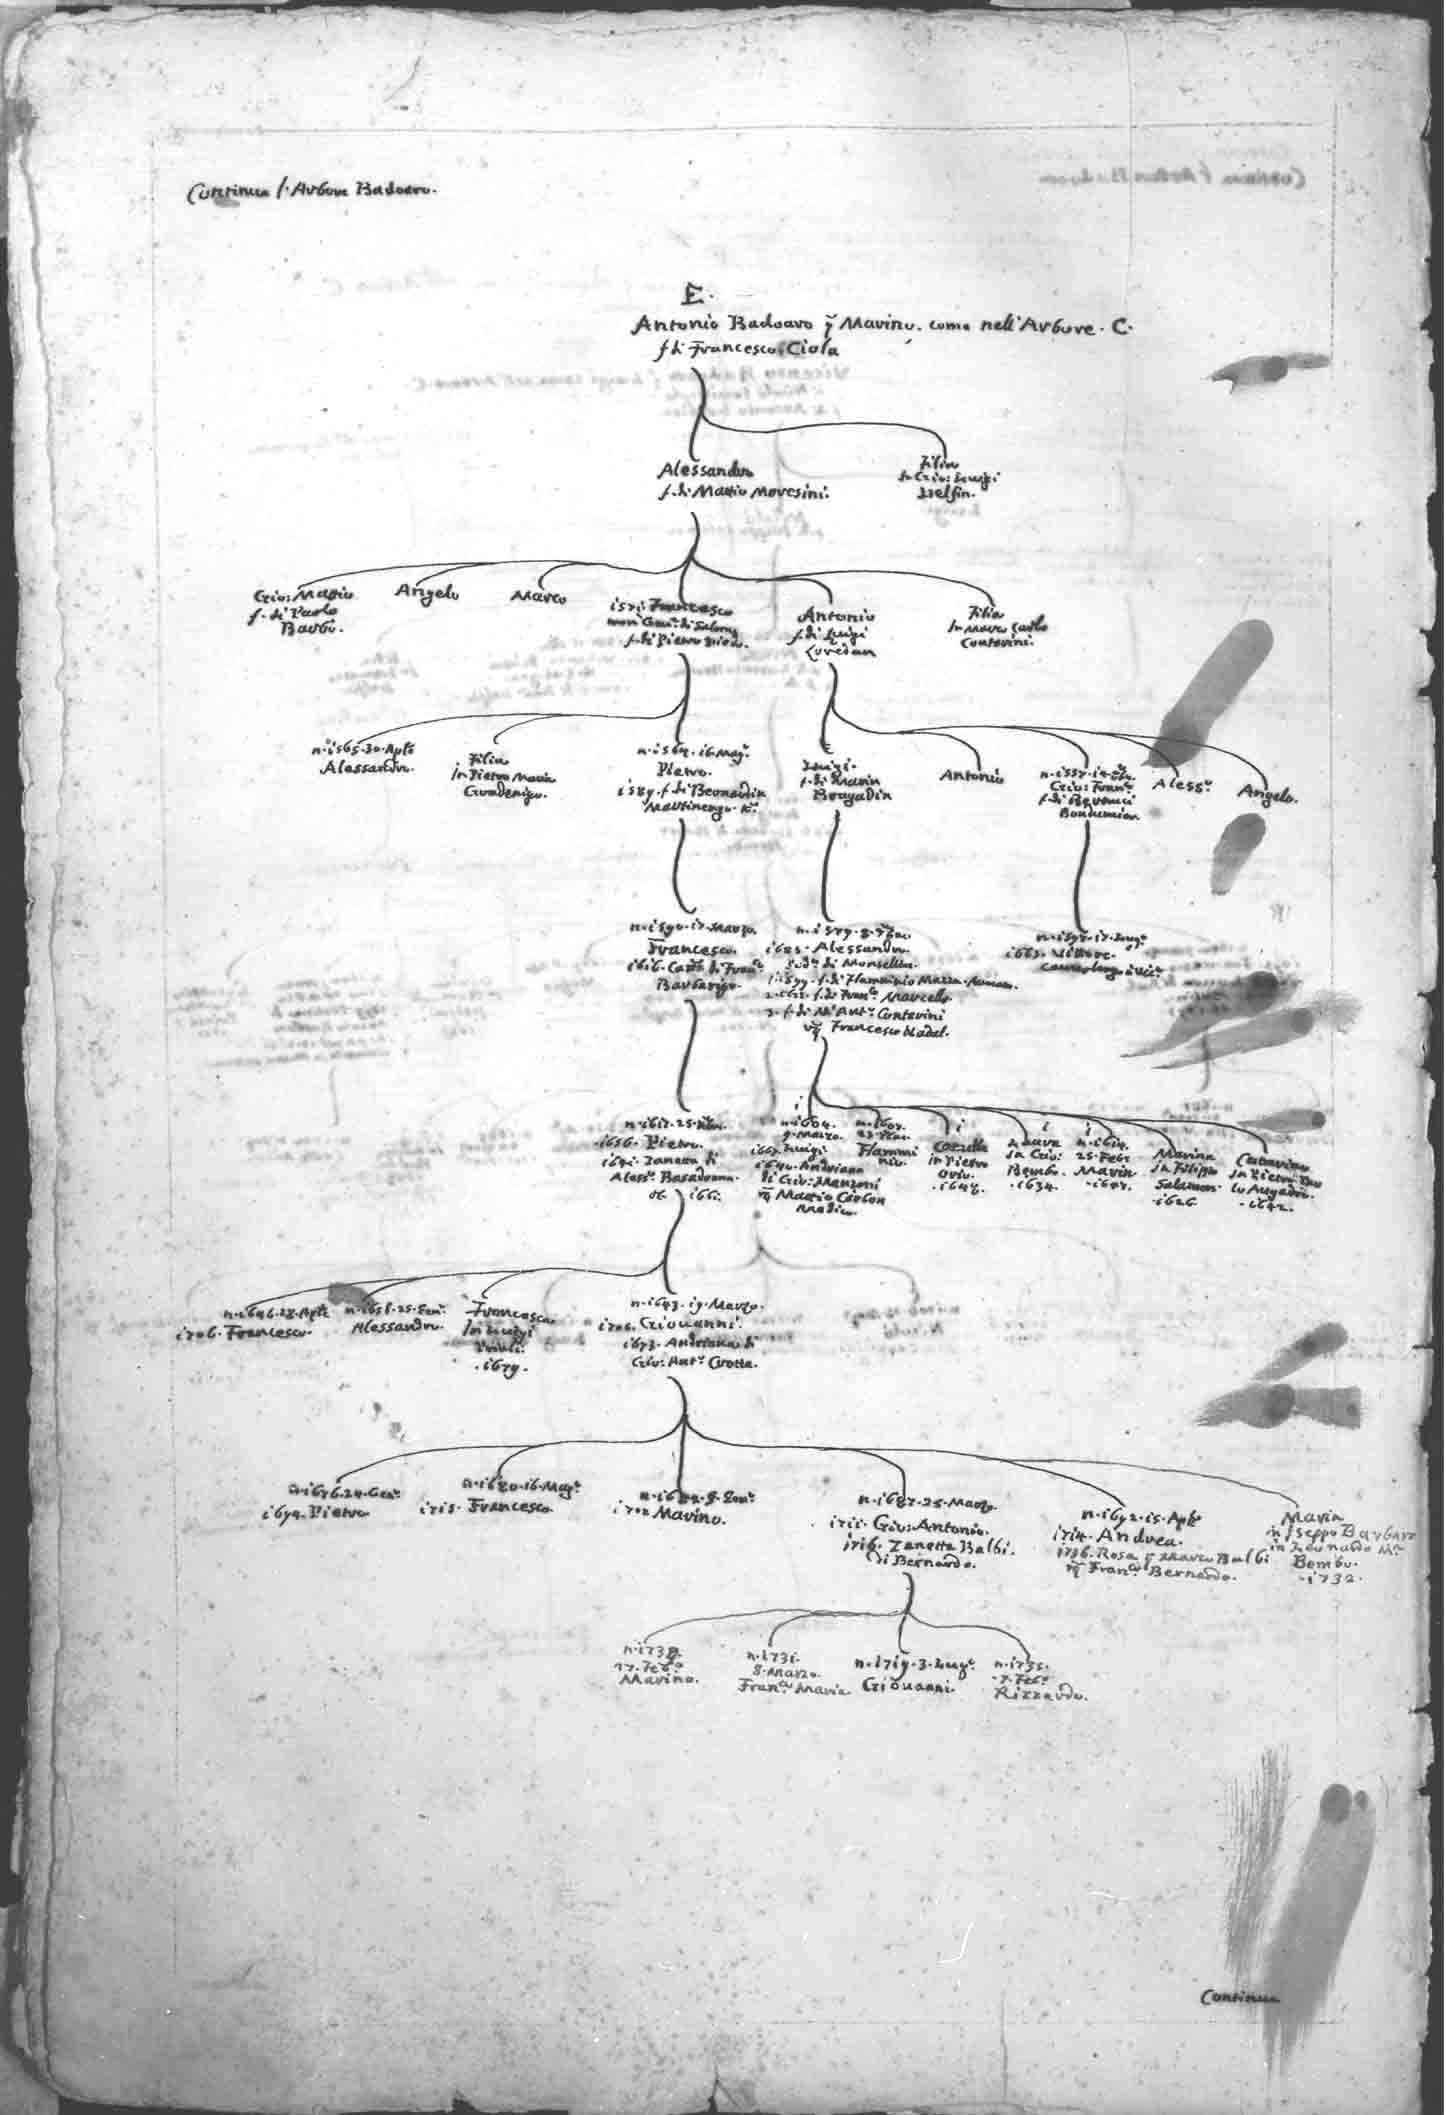 Continua l'Arbore Badoaro.
E.
Antonio Badoaro q Marino. come nell'Arbore. C.
f. di Francesco Ciola
Alessandro
f. di Mattio Moresini.
Filia
In Gio: Luigi
Delfin.
Gio: Mattio
f. di Paolo
Barbo.
Angelo
Marco
1571. Francesco
f. di Pietro
Antonio
f. di Luigi
Loredan
Filia
In Marco Carlo
Contarini.
n. 1565. 30. Aple
Alessandro.
Filia
In Pietro Maria
Gradenigo.
n. 1564. 16. Magº.
Pietro.
1589. f. di Bernardin
Martinengo. Kr.
Luigi.
f. di Marin
Bragadin
Antonio
n. 1557.
Gio: Franco.
f. di
Bondumier
Alesso.
Angelo.
n. 1590. 17. Marzo.
Francesco.
1616. Catta di Franco.
Barbarigo.
n. 1579. 8.
Alessandro.
Podà. di Monselice.
1. 1599. f. di Flamminio Mazza
f. di Franco. Marcello.
3. f. di M. Anto. Contarini
vq Francesco Nadal.
n. 17. Lugo.
Vittore.
n. 1617. 25.
1656. Pietro.
1641. Zanetta di
Alesso. Basadonna.
ob. 1661.
n. 1604.
9. Marzo.
Luigi
1640. Andriana
di Gio: Manzoni
vq Mattio Carbon
Medico.
Flammi
nio.
In Pietro
Orio.
Laura
In Gio:
Bembo.
. 1634.
n. 1614.
25. Feb.
Marin
Marina
In Filippo
Salamon.
. 1626.
Catarina
In Pietro
. 1642.
n. 1646. 28. Aple
1706. Francesco.
n. 1651. 25. Geno.
Alessandro.
Francesca
In Luigi
Priuli.
. 1679.
n. 1643. 19. Marzo.
1706. Giovanni.
1673. Andriana di
Gio: Anto. Crotta.
n. 1676. 24. Geno.
1694. Pietro
n. 1680. 16. Mago.
1715. Francesco.
8. Geno.
1702 Marino.
n. 1687. 25. Marzo.
1711. Gio: Antonio.
1716. Zanetta Balbi.
di Bernardo.
n. 1692. 15. Aple
1714. Andrea.
1736. Rosa q Marco Balbi
vq Franco. Bernardo.
Maria
in Iseppo Barbaro
in Leonardo Ma.
Bembo.
. 1732.
17. Febo.
Marino.
n. 1731.
8. Marzo.
Franco. Maria
n. 1719. 3. Lugo.
Giovanni
n. 1735.
7. Febo.
Rizzardo.
Continua